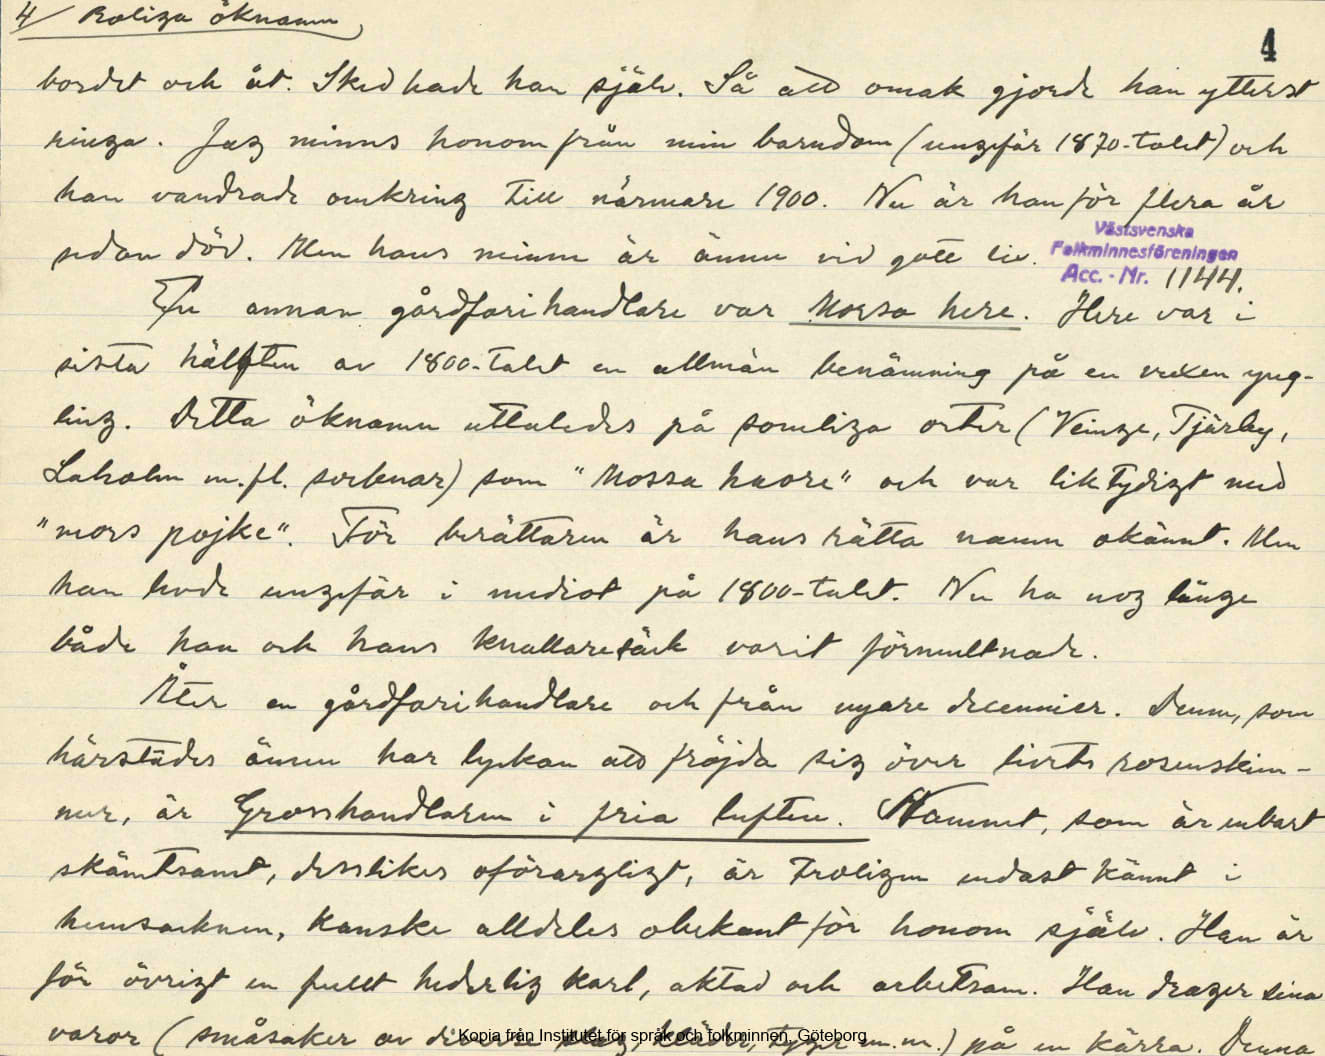 4/ Roliga öknamn
4
bordet och åt. Sked hade han själv. Så att omak gjorde han ytterst
ringa. Jag minns honom från min barndom (ungefär 1870-talet) och
han vandrade omkring till närmare 1900. Nu är han för flera år
sedan död. Men hans minne är ännu vid gott liv.
Västsvenska
Folkminnesföreningen
Acc. - Nr. 1144.
En annan gårdfarihandlare var Morsa here. Here var i
sista hälften av 1800-talet en allmän benämning på en vuxen yng-
ling. Detta öknamn uttalades på somliga orter (Veinge, Tjärby,
Laholm m.fl. socknar) som "Mossa haore" och var liktydigt med
"mors pojke". För berättaren är hans rätta namn okännt. Men
han levde ungefär i mediot på 1800-talet. Nu ha nog länge
både han och hans knallaresäck varit förmultnade.
Åter en gårdfarihandlare och från nyare decennier. Denne, som
härstädes ännu har lyckan att fröjda sig över livets rosenskim-
mer, är Grosshandlaren i fria luften. Namnet, som är enbart
skämtsamt, desslikes oförargligt, är troligen endast kännt i
hemsocknen, kanske alldeles obekant för honom själv. Han är
för övrigt en fullt hederlig karl, aktad och arbetsam. Han drager sina
varor (småsaker av diverse slag, kläder, tyger m.m.) på en kärra. Denna
Kopia från Institutet för språk och folkminnen, Göteborg